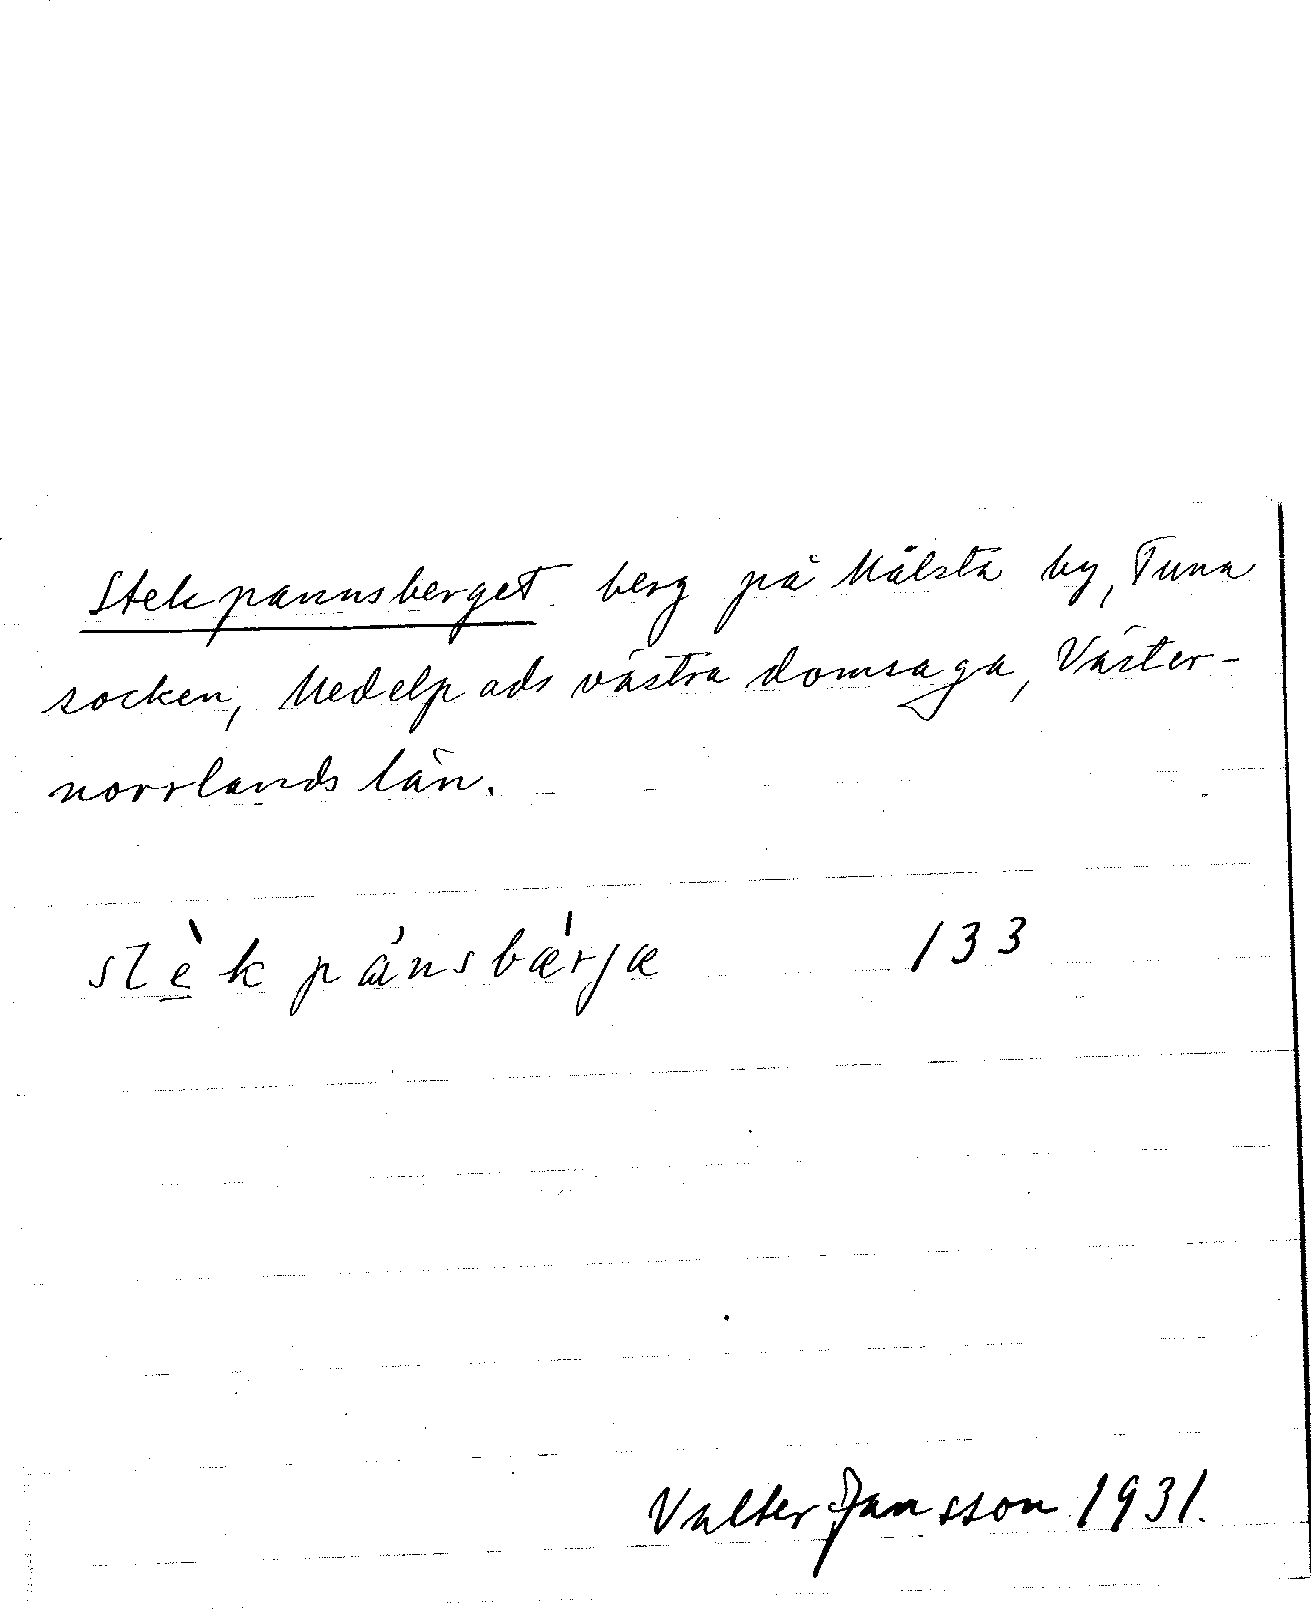 Stekpannsberget berg på Målsta by, Tuna
socken, Medelpads västra domsaga, Väster-
norrlands län.
stèk pánsbǽrjæ 133
Valter Jansson 1931.